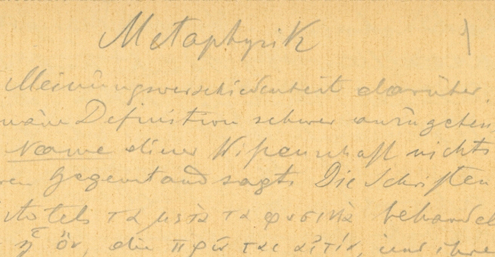 Metaphysik 1
Meinungsverschiedenheit darüber
Definition schwer anzugeben
Name dieser Wissenschaft nichts
Gegenstand sagt. Die Schriften
τὰ μετὰ τὰ φυσικὰ behandel
ᾗ ὄν, die πρῶται αἰτίαι, und ihre